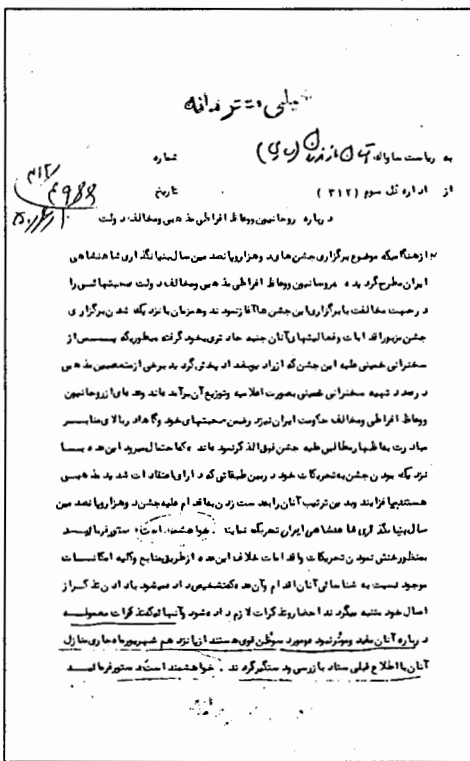 خیلی محترمانه
به ریاست ساواک آذربایجان
شماره ۳۱۲/
از اداره کل سوم (۳۱۲)
تاریخ
درباره روحانیون ووعاظ افراطی مذهبی ومخالف دولت
ازهنگامیکه موضوع برگزاری جشن های دوهزاروپانصدمین سال بنیانگذاری شاهنشاهی
ایران مطرح گردیده روحانیون ووعاظ افراطی مذهبی ومخالف دولت صحبتهائی را
درجهت مخالفت بابرگزاری این جشن ها آغازنمودند وهمزمان بانزدیک شدن برگزاری
جشن مزبور اقدامات وفعالیتهای آنان جنبه حادتری بخود گرفته بطوریکه پس از
سخنرانی خمینی علیه این جشن که ازرادیو بغداد پخش گردید برخی ازمتعصبین مذهبی
درصدد تهیه سخنرانی خمینی بصورت اعلامیه وتوزیع آن برآمده اند وعده ای ازروحانیون
ووعاظ افراطی ومخالف حکومت ایران نیزدرضمن صحبتهای خود وگاها دربالای منابر
مبادرت به اظهارمطالبی علیه جشن فوق الذکرنموده اند که احتمال میرود این عده با
نزدیک بودن جشن به تحریکات خود دربین طبقاتی که دارای اعتقادات شدید مذهبی
هستند بیافزایند وبدین ترتیب آنان رابدست زدن به اقدام علیه جشن دوهزاروپانصدمین
سال بنیانگذاری شاهنشاهی ایران تحریک نمایند. خواهشمند است دستورفرمائید
بمنظورخنثی نمودن تحریکات واقدامات خلاف این عده ازطریق منابع وکلیه امکانات
موجود نسبت به شناسائی آنان اقدام وآن عده که تشخیص داده میشود با دادن تذکر از
اعمال خود متنبه میگردند احضاروتذکرات لازم داده شود وآنهائیکه تذکرات معموله
درباره آنان مفید وموثرنبوده ومورد سوءظن قوی هستند ازپانزدهم شهریورماه جاری منازل
آنان با اطلاع قبلی ستاد بازرسی ودستگیرگردند. خواهشمند است دستورفرمائید